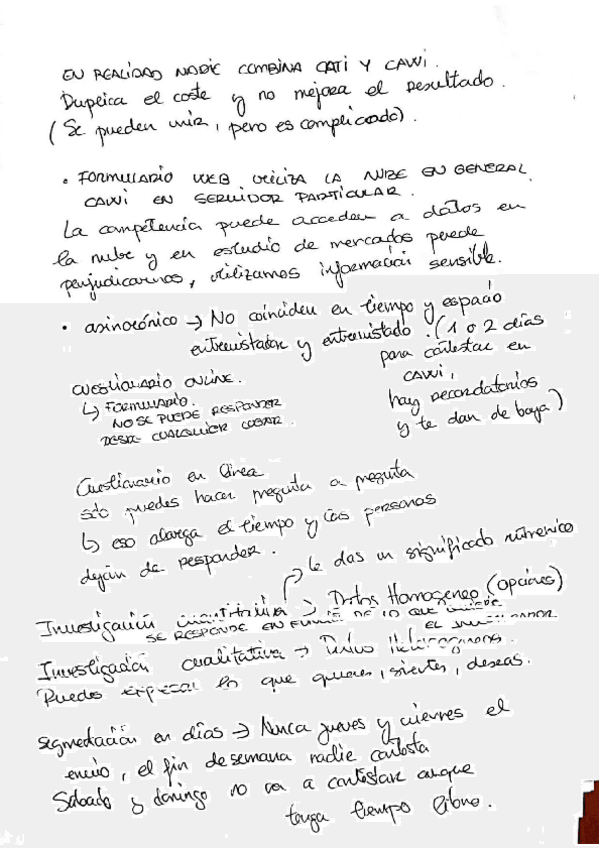 EN REALIDAD NADIE COMBINA CATI Y CAWI.
Duplica el coste y no mejora el resultado.
(Se pueden unir, pero es complicado).
• FORMULARIO WEB UTILIZA LA NUBE EN GENERAL
CAWI EN SERVIDOR PARTICULAR.
La competencia puede acceder a datos en
la nube y en estudio de mercados puede
perjudicarnos, utilizamos información sensible.
• asincrónico → No coinciden en tiempo y espacio
entrevistador y entrevistado. (1 o 2 días
para contestar en
CAWI,
hay recordatorios
y te dan de baja)
CUESTIONARIO ONLINE.
↳ FORMULARIO.
NO SE PUEDE RESPONDER
DESDE CUALQUIER LUGAR.
Cuestionario en línea
sólo puedes hacer pregunta a pregunta
↳ eso alarga el tiempo y las personas
dejan de responder.
le das un significado númerico
Investigación cuantitativa → Datos Homogeneo (opciones)
SE RESPONDE EN FUNCIÓN DE LO QUE QUIERE
EL INVESTIGADOR
Investigación cualitativa → Datos Heterogeneos.
Puedes expresar lo que quieres, sientes, deseas.
Segmentación en días → Nunca jueves y viernes el
envio, el fin de semana nadie contesta
Sabado y domingo no va a contestar aunque
tenga tiempo libre.